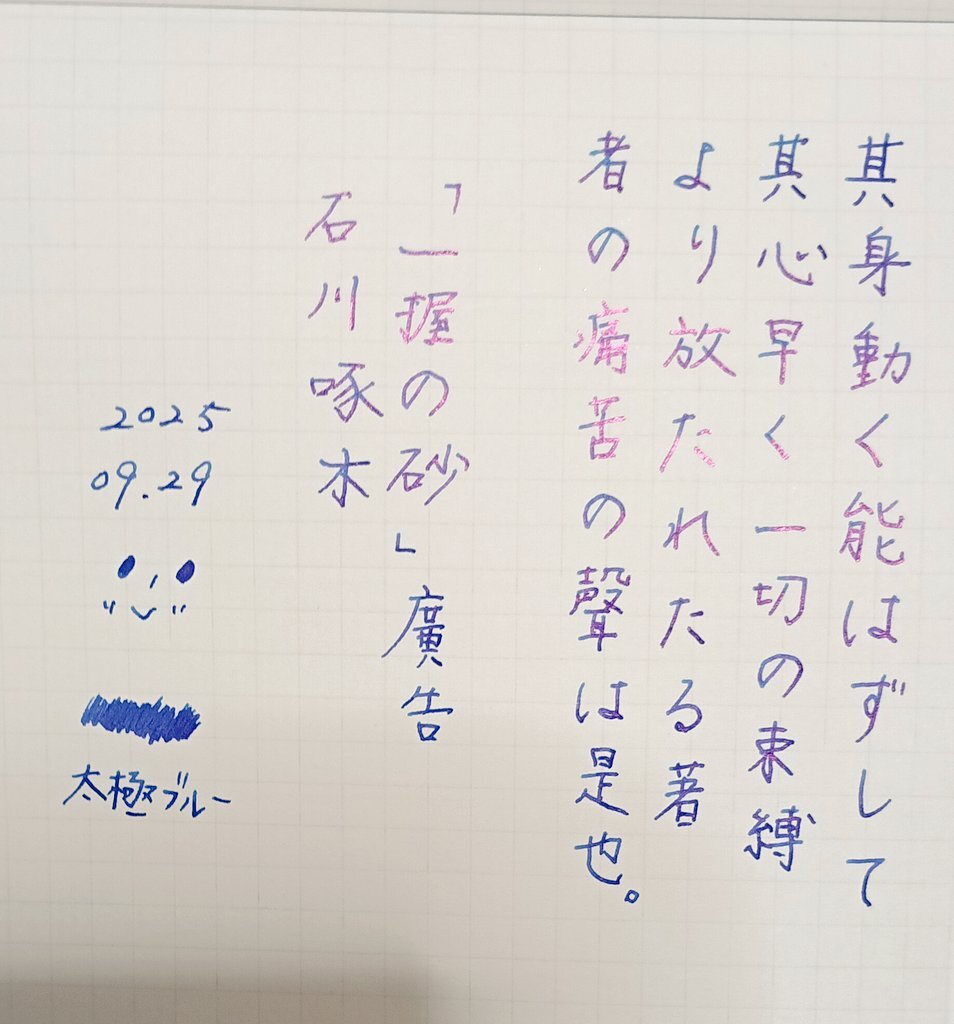 其身動く能はずして
其心早く一切の束縛
より放たれたる著
者の痛苦の聲は是也。
「一握の砂」廣告
石川啄木
2025
09.29
太極ブルー